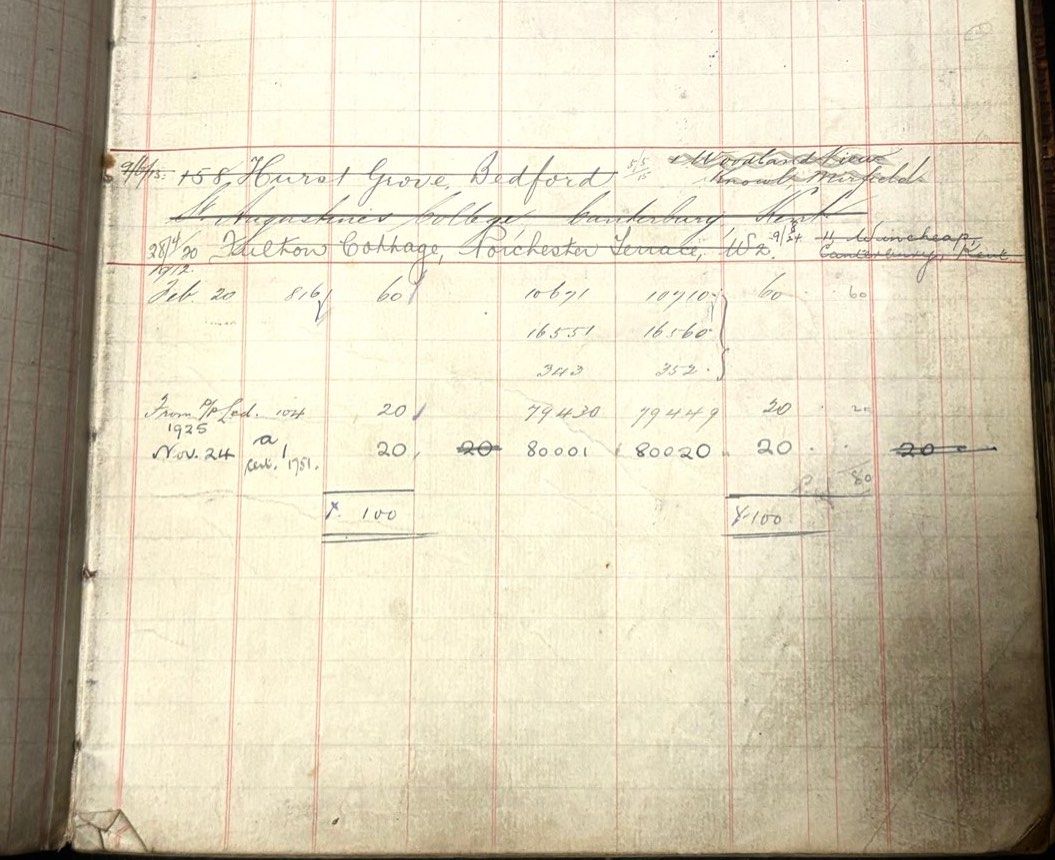 9/6/13. 155 Hurst Grove, Bedford 5/5/15 Woodland View
Knowl, Mirfield
St Augustine's College Canterbury, Kent
28/4/20 Fulton Cottage, Porchester Terrace, W2. 9/8/24 11 Wincheap,
Canterbury, Kent.
1912.
Feb 20 816 60 10671 10710 60 60
16551 16560
343 352
From P/P Led. 104 20 79430 79449 20 20
1925
Nov. 24 a/ cert. 1751. 20 20 80001 80020 20 20
80
100 100